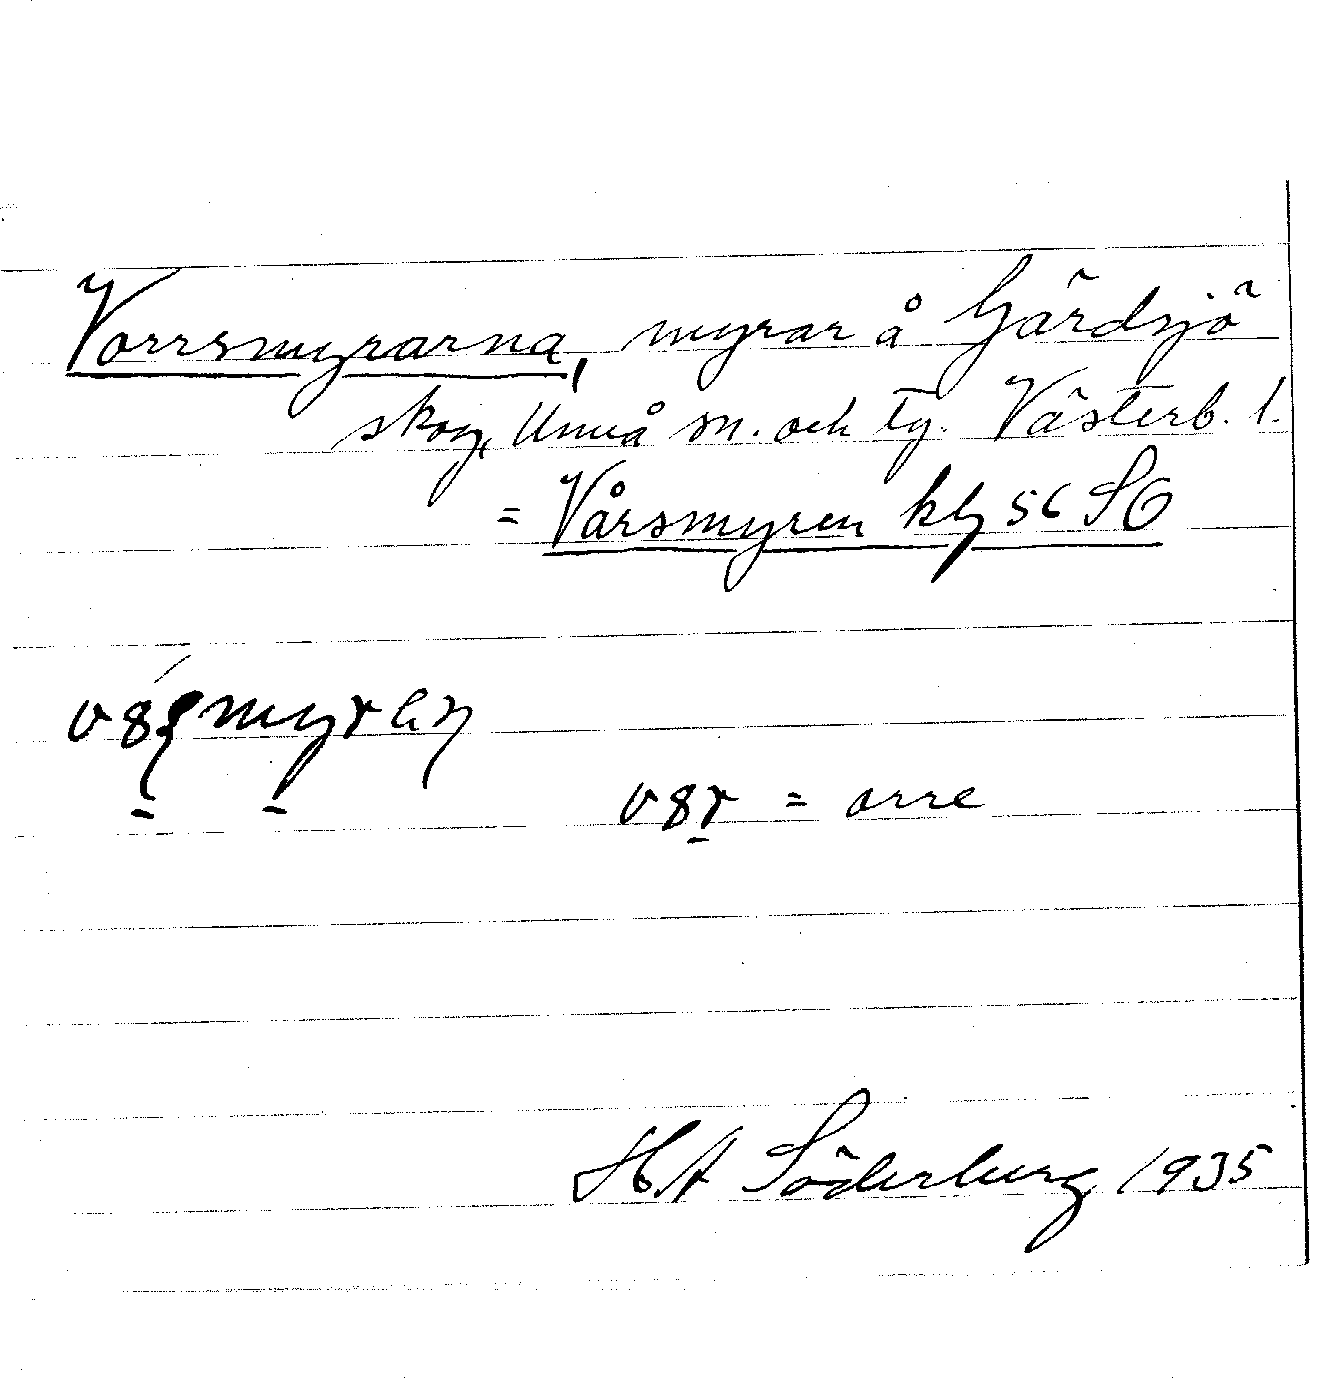 Vorrsmyrarna, myrar å Gärdsjö
skog, Umeå sn. och tg. Västerb. l.
= Vårsmyren kbl 56 SO
= orre
H.A Söderberg 1935